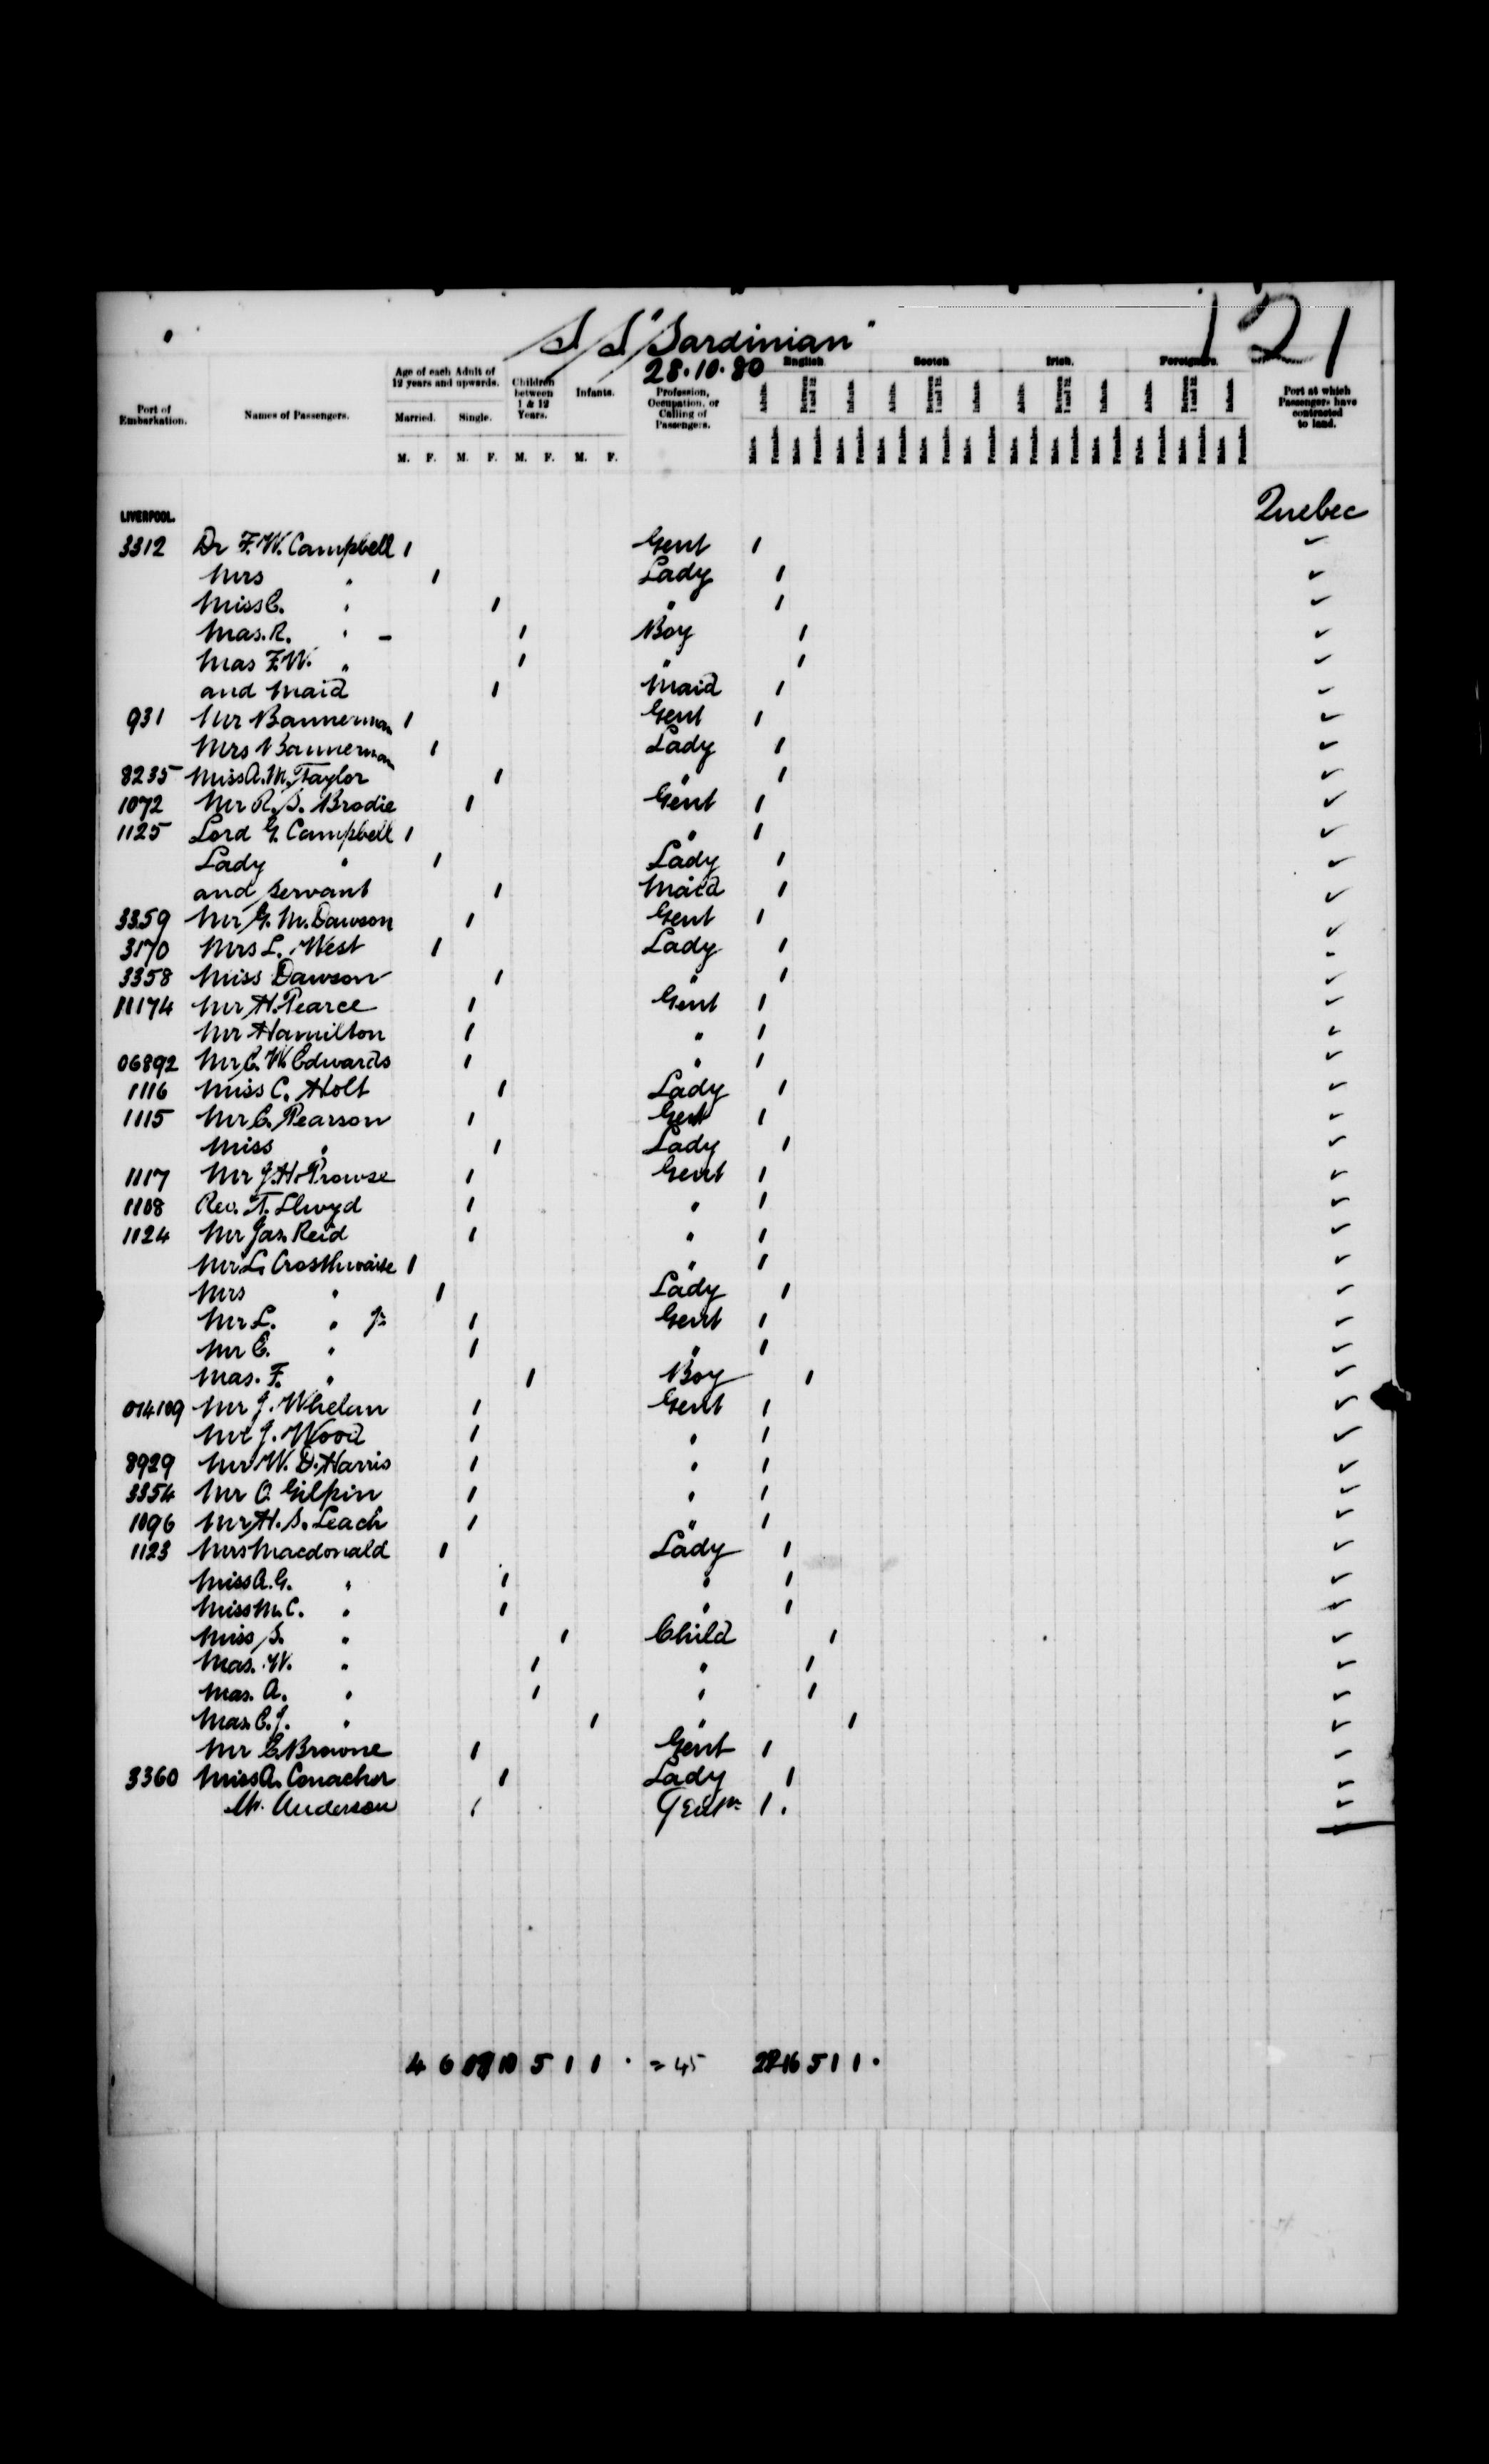 121
S/S "Sardinian"
28.10.80
Port of Embarkation. Names of Passengers. Age of each Adult of 12 years and upwards. Children between 1 & 12 Years. Infants. Profession, Occupation, or Calling of Passengers. English Scotch Irish. Foreigners. Port at which Passengers have contracted to land.
Married. Single.
Adults. Between 1 and 12. Infants. Adults. Between 1 and 12. Infants. Adults. Between 1 and 12. Infants. Adults. Between 1 and 12. Infants.
M. F. M. F. M. F. M. F. Males. Females. Males. Females. Males. Females. Males. Females. Males. Females. Males. Females. Males. Females. Males. Females. Males. Females. Males. Females. Males. Females. Males. Females.
LIVERPOOL. Quebec
3312 Dr F.W. Campbell 1 Gent 1 ✓
Mrs " 1 Lady 1 ✓
Miss C. " 1 " 1 ✓
Mas. R. " - 1 Boy 1 ✓
Mas F.W. " 1 " 1 ✓
and Maid 1 Maid 1 ✓
931 Mr Bannerman 1 Gent 1 ✓
Mrs Bannerman 1 Lady 1 ✓
8235 Miss A.M. Taylor 1 " 1 ✓
1072 Mr R.S. Brodie 1 Gent 1 ✓
1125 Lord G. Campbell 1 " 1 ✓
Lady " 1 Lady 1 ✓
and servant 1 Maid 1 ✓
3359 Mr G.M. Dawson 1 Gent 1 ✓
3170 Mrs L. West 1 Lady 1 -
3358 Miss Dawson 1 " 1 ✓
11174 Mr H. Pearce 1 Gent 1 ✓
Mr Hamilton 1 " 1 ✓
06892 Mr C.W. Edwards 1 " 1 ✓
1116 Miss C. Holt 1 Lady 1 ✓
1115 Mr C. Pearson 1 Gent 1 ✓
Miss " 1 Lady 1 ✓
1117 Mr J.H. Prowse 1 Gent 1 ✓
1108 Rev. T. Llwyd 1 " 1 ✓
1124 Mr Jas. Reid 1 " 1 ✓
Mr L. Crosthwaite 1 " 1 ✓
Mrs " 1 Lady 1 ✓
Mr L. " Jr 1 Gent 1 ✓
Mr C. " 1 " 1 ✓
Mas. F. " 1 Boy 1 ✓
014109 Mr J. Whelan 1 Gent 1 ✓
Mr J. Wood 1 " 1 ✓
8929 Mr W.D. Harris 1 " 1 ✓
3354 Mr O. Gilpin 1 " 1 ✓
1096 Mr H.S. Leach 1 " 1 ✓
1123 Mrs Macdonald 1 Lady 1 ✓
Miss A.G. " 1 " 1 ✓
Miss M.C. " 1 " 1 ✓
Miss S. " 1 Child 1 ✓
Mas. W. " 1 " 1 ✓
Mas. A. " 1 " 1 ✓
Mas. C.J. " 1 " 1 ✓
Mr E. Browne 1 Gent 1 ✓
3360 Miss A. Conacher 1 Lady 1 ✓
Mr. Anderson 1 Gentn 1. ✓
4 6 10 5 1 1 . = 45 16 5 1 1 .